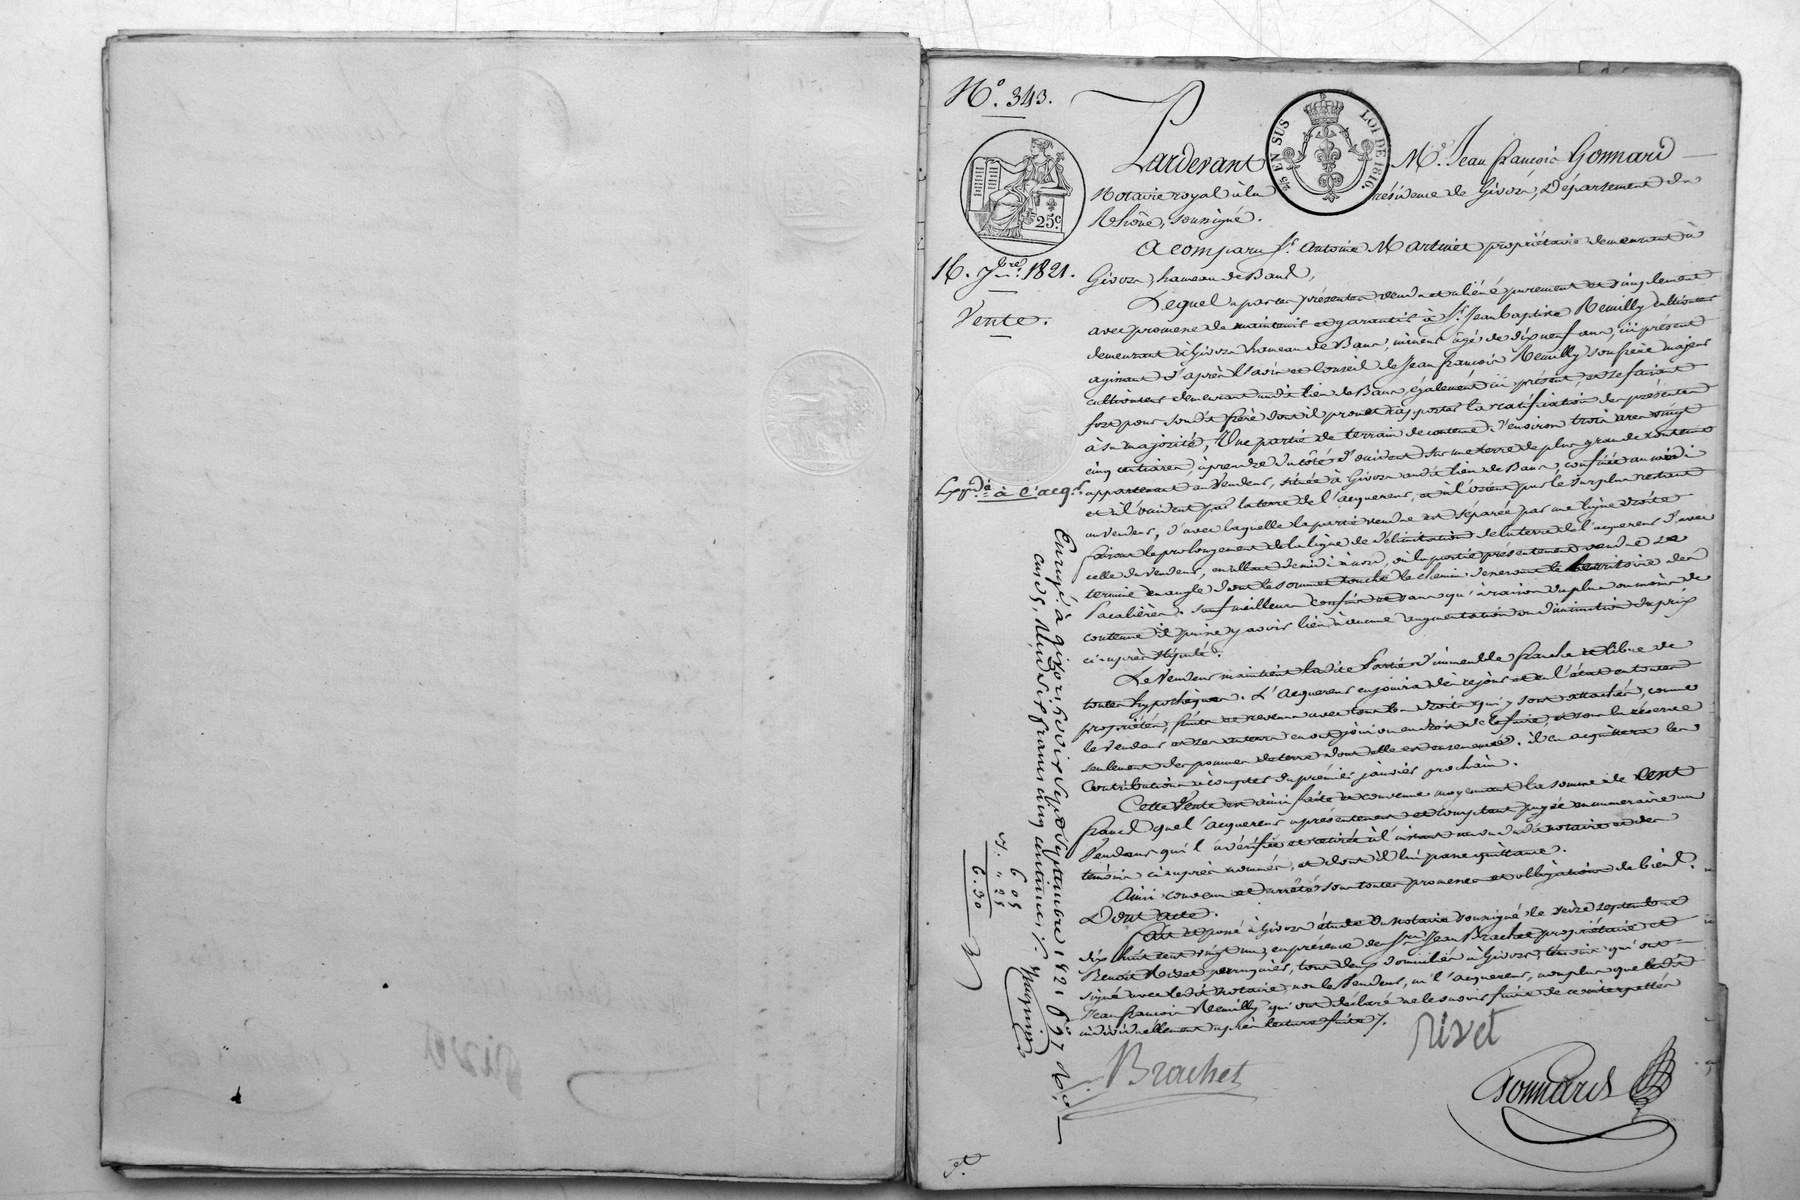 N.o 343.
25 EN SUS
LOI DE 1816.
25c.
Pardevant Me. Jean françois Gonnard
Notaire royal à la résidence de Givors, Département du
Rhône, soussigné.
16. 7bre. 1821.
Vente.
A comparu Sr. Antoine Martinet propriétaire demeurant à
Givors, hameau de Bans,
Lequel a par ces présentes vendu et aliéné purement et simplement
avec promesse de maintenir et garantir à Sr. Jean baptiste Remilly cultivateur
demeurant à Givors hameau de Bans, mineur âgé de dix neuf ans, ici présent
agissant d'après l'avis et Conseil de Jean françois Remilly son frère majeur
cultivateur demeurant au dit lieu de Bans également ici présent, et se faisant
fort pour son dit frère dont il promet rapporter la ratification des présentes
à sa majorité, Une partie de terrain de contenue d'environ trois ares vingt
cinq centiares, à prendre du côté d'occident sur une terre de plus grande contenue
appartenant au Vendeur, située à Givors au dit lieu de Bans, confinée au midi
et à l'occident par la terre de l'acquereur, et à l'orient par le surplus restant
au vendeur, d'avec laquelle la partie vendue est séparée par une ligne droite
faisant le prolongement de la ligne de délimitation de la terre de l'acquereur d'avec
celle du vendeur, en allant de midi à nord, où la partie présentement vendue se
termine en angle dont le sommet touche le chemin desservant le territoire des
Pacalières. sauf meilleurs confins et sans qu'à raison du plus ou moins de
contenue il puisse y avoir lieu à aucune augmentation ou diminution du prix
ci-après stipulé.
Expdé. à l'acqr.
Le Vendeur maintient ladite Partie d'immeuble franche et libre de
toutes hypothèques. L'acquereur en jouira dès ce jour et en l'état en toutes
propriétés, fruits et revenus avec tous les droits qui y sont attachés, comme
le Vendeur et ses auteurs en ont joui ou eu droit de le faire, et sous la réserve
seulement des pommes de terre dont elle est ensemencée. il en acquittera les
Contributions à compter du premier janvier prochain.
Cette Vente est ainsi faite et convenue moyennant la somme de Cent
francs que l'acquereur a présentement et comptant payée en numeraire au
Vendeur qui l'a vérifiée et retirée à l'instant au vu du dit notaire et des
témoins ci-après nommés, et dont il lui passe quittance.
Ainsi convenu et arrêté sous toutes promesses et obligations de biens.
Dont Acte.
Fait et passé à Givors étude du notaire soussigné le seize septembre
dix huit cent vingt un, en présence de Srs. Jean Brachet propriétaire et
Benoit Rivet perruquier, tous deux domiciliés à Givors, témoins qui ont
signé avec ledit notaire, non le Vendeur, ni l'acquereur, non plus que ledit
Jean françois Remilly qui ont déclaré ne le savoir faire de ce interpellés
individuellement après lecture faite /.
Rivet
Brachet
Gonnard
Enregé. à givors le dix sept Septembre 1821 fo 97 Ro. Ce
cases 5. Reçu six francs cinq centimes /.
6 05
" 25
6.30